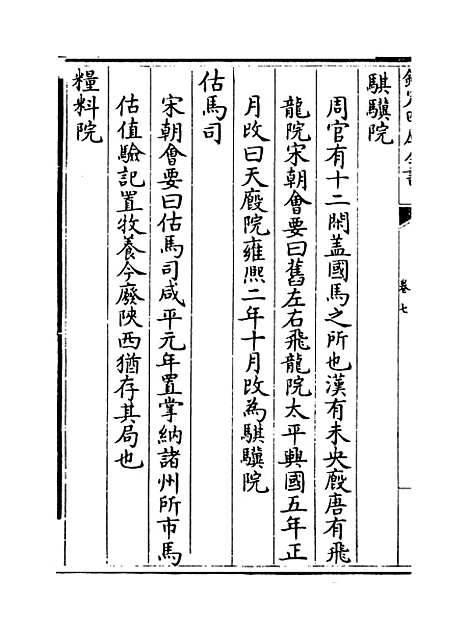 欽定四庫全書
卷七
騏驥院
周官有十二閑盖國馬之所也漢有未央廐唐有飛
龍院宋朝會要曰舊左右飛龍院太平興國五年正
月改曰天廐院雍熙二年十月改為騏驥院
估馬司
宋朝會要曰估馬司咸平元年置掌納諸州所市馬
估值驗記置牧養今廢陜西猶存其局也
糧料院